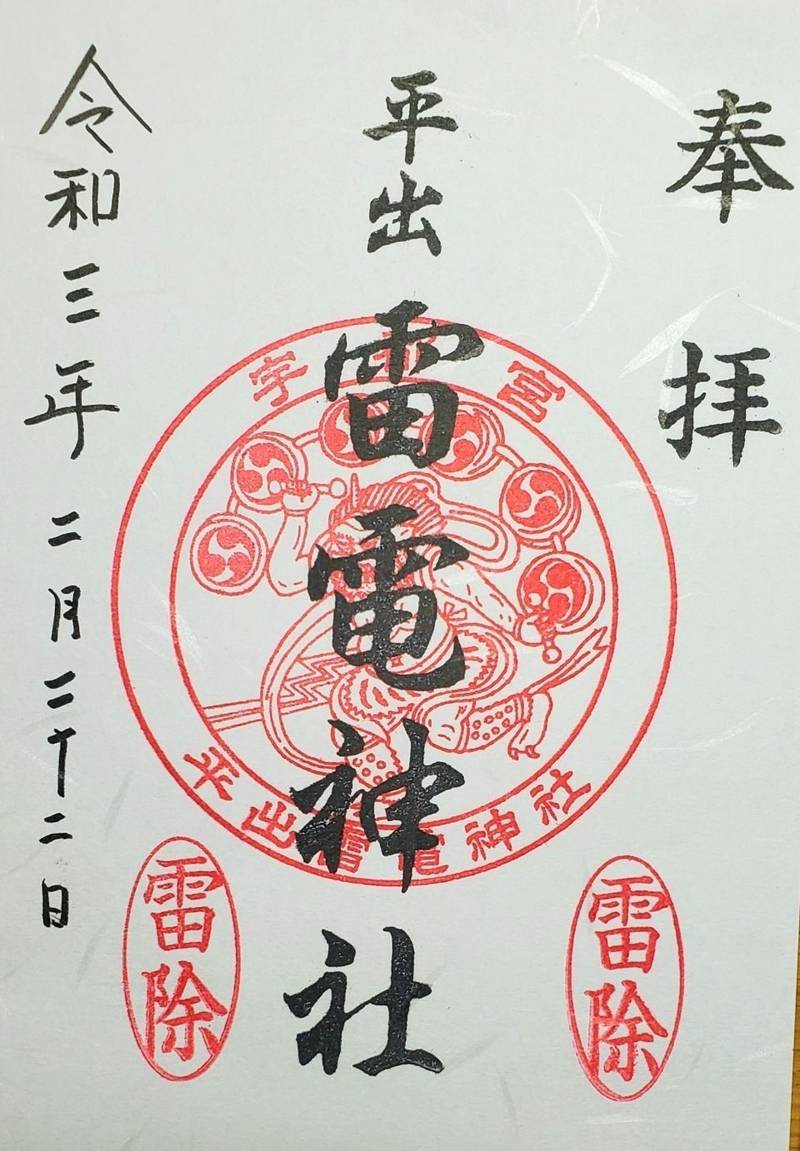 奉拝
平出雷電神社
令和三年二月二十二日
宇都宮
平出雷電神社
雷除
雷除